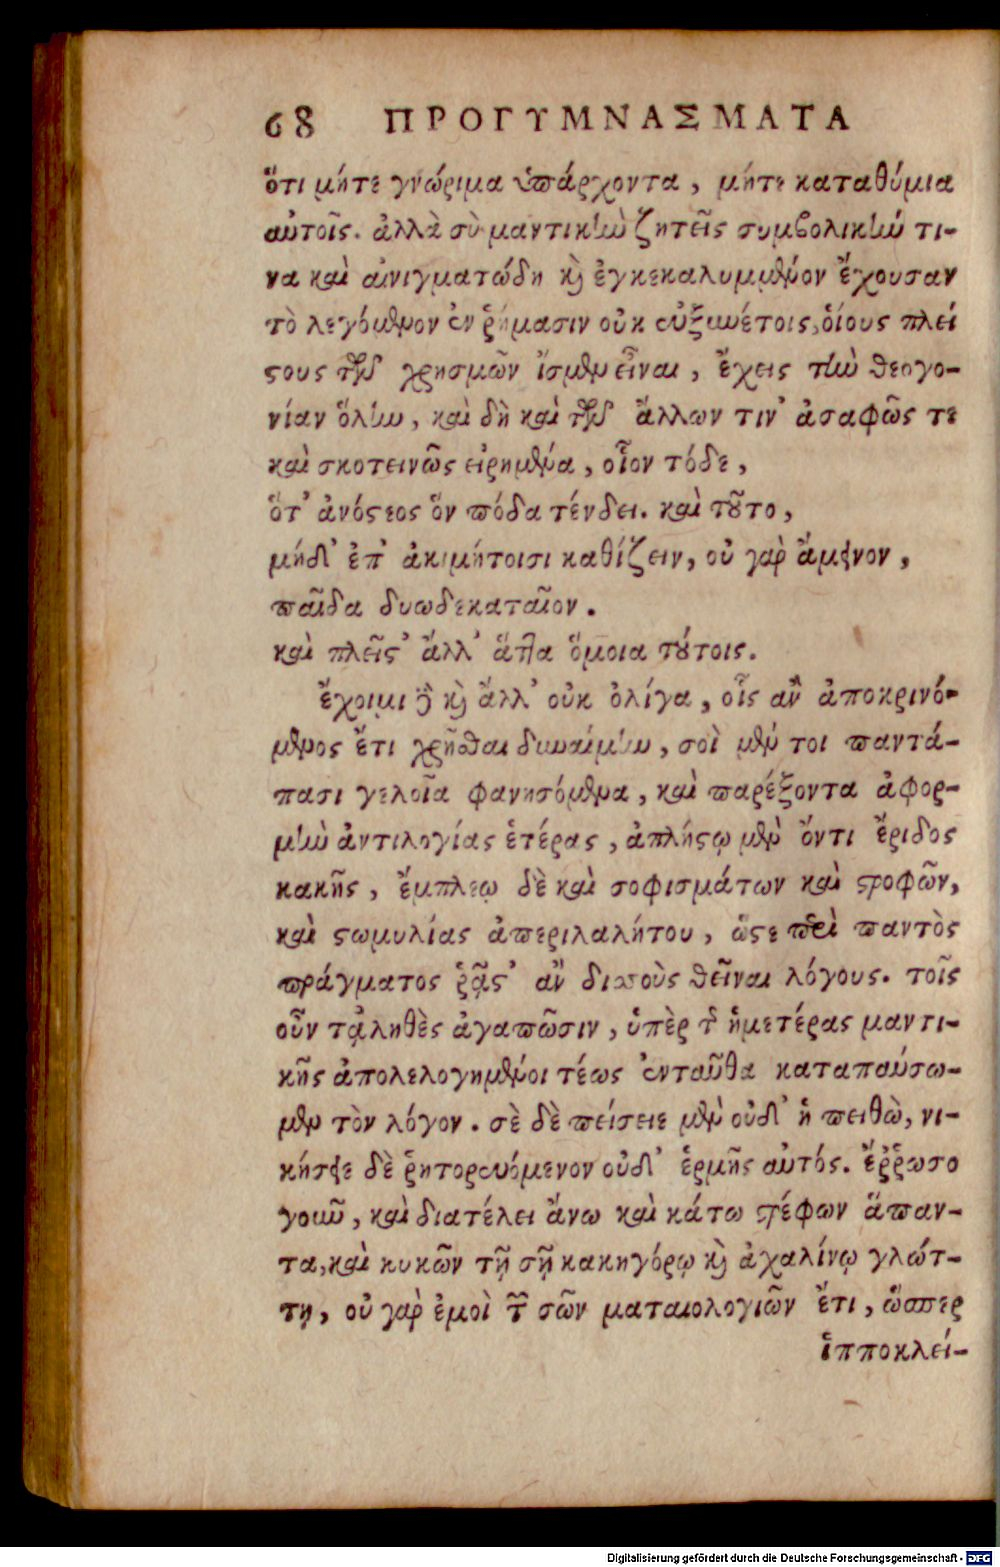 68 ΠΡΟΓΥΜΝΑΣΜΑΤΑ
ὅτι μήτε γνώριμα ὑπάρχοντα, μήτε καταθύμια
αὐτοῖς. ἀλλὰ σὺ μαντικὴν ζητεῖς συμβολικήν τι-
να καὶ αἰνιγματώδη καὶ ἐγκεκαλυμμένον ἔχουσαν
τὸ λεγόμενον ἐν ῥήμασιν οὐκ εὐξυνέτοις, ὁίους πλεί
ςους τῶν χρησμῶν ἴσμεν εἶναι, ἔχεις τὴν θεογο-
νίαν ὅλην, καὶ δὴ καὶ τῶν ἄλλων τιν' ἀσαφῶς τε
καὶ σκοτεινῶς εἰρημένα, οἷον τόδε,
ὅτ' ἀνόςεος ὃν πόδα τένδει. καὶ τοῦτο,
μήδ' ἐπ' ἀκιμήτοισι καθίζειν, οὐ γὰρ ἄμεινον,
παῖδα δυωδεκαταῖον.
καὶ πλεῖς' ἄλλ' ἅττα ὅμοια τούτοις.
ἔχοιμι δὲ καὶ ἄλλ' οὐκ ὀλίγα, οἷς ἂν ἀποκρινό-
μενος ἔτι χρῆσθαι δυναίμην, σοὶ μέν τοι παντά-
πασι γελοῖα φανησόμενα, καὶ παρέξοντα ἀφορ-
μὴν ἀντιλογίας ἑτέρας, ἀπλήςῳ μὲν ὄντι ἔριδος
κακῆς, ἔμπλεῳ δὲ καὶ σοφισμάτων καὶ στροφῶν,
καὶ ςωμυλίας ἀπεριλαλήτου, ὥςε περὶ παντὸς
πράγματος ῥᾷς' ἂν διττοὺς θεῖναι λόγους. τοῖς
οὖν τἀληθὲς ἀγαπῶσιν, ὑπὲρ τῆς ἡμετέρας μαντι-
κῆς ἀπολελογημένοι τέως ἐνταῦθα καταπαύσω-
μεν τὸν λόγον. σὲ δὲ πείσειε μὲν οὐδ' ἡ πειθὼ, νι-
κήσειε δὲ ῥητορευόμενον οὐδ' ἑρμῆς αὐτός. ἔῤῥωσο
γοῦν, καὶ διατέλει ἄνω καὶ κάτω στρέφων ἅπαν-
τα, καὶ κυκῶν τῇ σῇ κακηγόρῳ καὶ ἀχαλίνῳ γλώτ-
τῃ, οὐ γὰρ ἐμοὶ τῶν σῶν ματαιολογιῶν ἔτι, ὥσπερ
ἱπποκλεί-
Digitalisierung gefördert durch die Deutsche Forschungsgemeinschaft - DFG